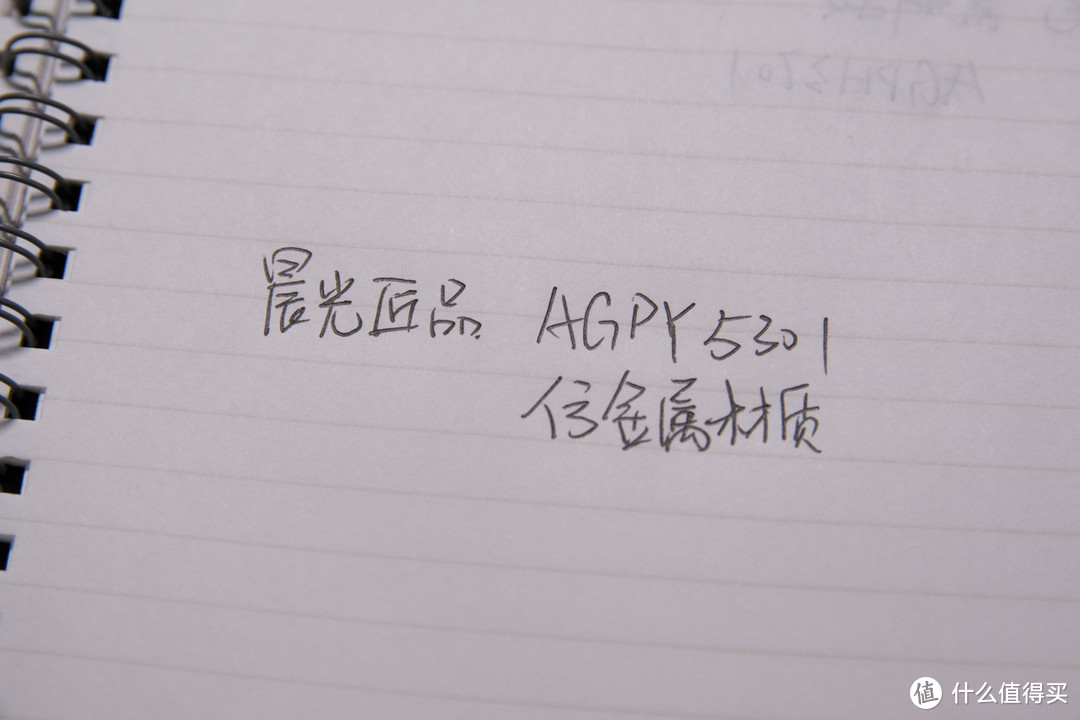 晨光匠品 AGPY5301
仿金属材质
值 什么值得买